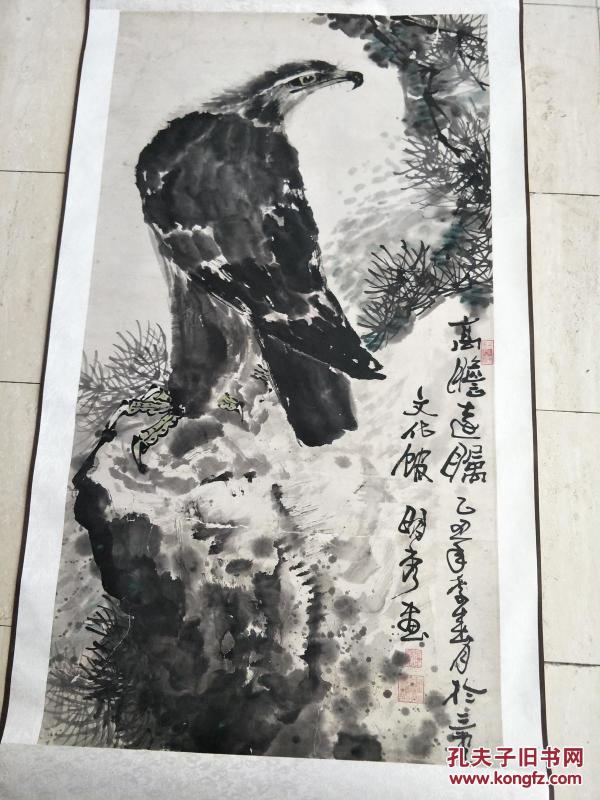 高瞻远瞩 乙丑年季春月於三
文化馆 明秀画
孔夫子旧书网
www.kongfz.com